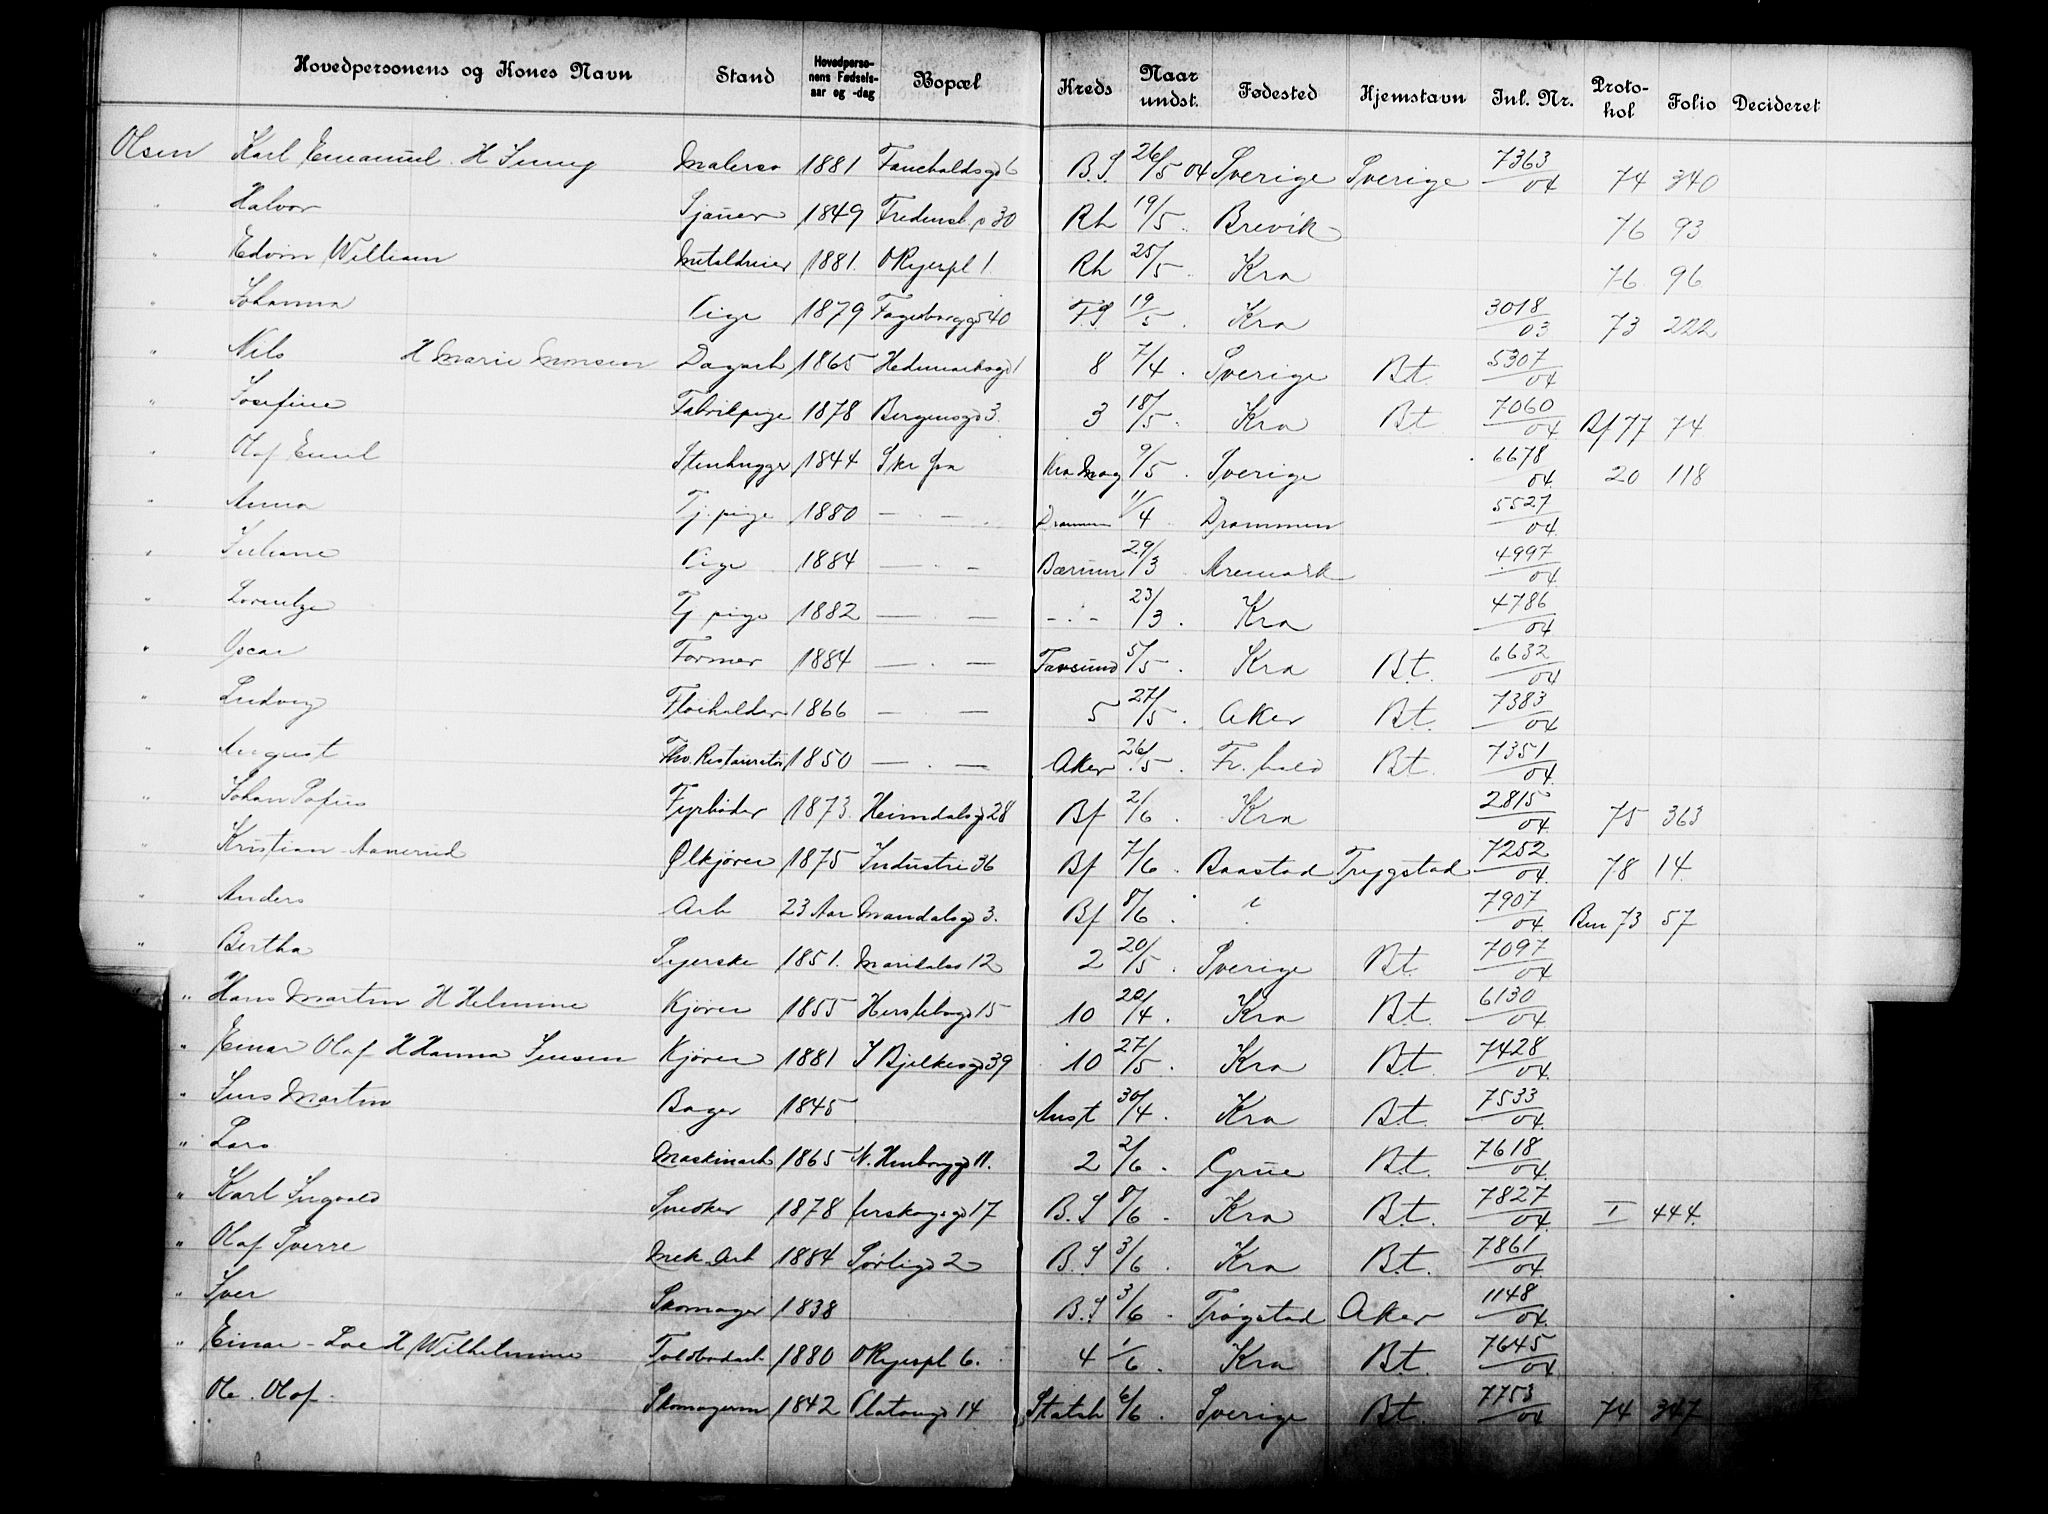 Hovedpersonens og Kones Navn Stand Hovedpersonens Fødselsaar og -dag Bopæl Kreds Naar undst. Fødested Hjemstavn Inl. Nr. Protokol Folio Decideret
Olsen Karl Emanuel H Jenny Malersv 1881 6 B.S. 26/5 04 Sverige Sverige 7363/04 74 340
" Halvor Sjauer 1849 Fredensb. 30 Rh 19/5 Brevik 76 93
" Edvin William Metaldreier 1881. O Ryespl 1. Rh 25/5 Kra 76 96
" Johanna Pige 1879 Fagerborgg 40 F.S 19/5 Kra 3018/03 73 222
" Nils H Marie Monsen Dagarb 1865 Hedemarksg 1 8 7/4 Sverige Bt. 5307/04
" Josefine Fabrikpige 1878 Bergensg 3. 3 18/5 Kra Bt 7060/04 Bf 77 74
" Olaf Emil Stenhugger 1844 Kra Mag 9/5 Sverige 6678/04 20 118
" Anna Tj. pige 1880 — . — . Drammen 11/4 Drammen 5527/04
" Juliane Pige 1884 — . — Bærum 29/3 Aremark 4997/04
" Tj pige 1882 — . — - . - 23/3 Kra 4786/04
" Oscar Former 1884 — . — 5/5 Kra Bt. 6632/04
" Ludvig 1866 — — 5 27/5 Aker Bt. 7383/04
" August Restauratør 1850 — . — Aker 26/5 Fr. hald Bt. 7351/04
" Johan Fyrbøder 1873. Heimdalsg 28 Bf 2/6 Kra 2815/04 75 363
" Kristian Aanerud Ølkjører 1875 Industri 36 Bf 7/6 Baastad Trygstad 7252/04 78 14.
" Anders Arb 23 Aar Mandalsg 3. Bf 8/6 ? 7907/04 73 57
" Bertha Syerske 1851. Maridalsv 12 2 20/5 Sverige Bt. 7097/04
" Hans Martin H Helmine Kjører 1855 Herslebsg 15 10 20/4 Kra Bt. 6130/04
" Einar Olaf H Hanna Jensen Kjører 1881 J Bjelkesg 39 10 27/5 Kra Bt. 7428/04
" Jens Martin Bager 1845 Anst 30/4 Kra Bt. 7533/04
" Lars Maskinarb 1865 11. 2 2/6 Grue Bt. 7618/04
" Karl Ingvald Snedker 1878 17 B.S 8/6 Kra Bt. 7827/04 I 444.
" Olaf Sverre Mek. Arb 1884 Sørlig 2 B.S 3/6 Kra Bt. 7861/04
" Iver Skomager 1838 B.S 3/6 Trøgstad Aker 1148/04
" Einar - H Wilhelmine Toldbodarb 1880 O Ryespl 6. 4 1/6 Kra Bt. 7645/04
Ole Olaf. Skomagerm 1842 14 6/6 Sverige Bt. 7753/04 74 347